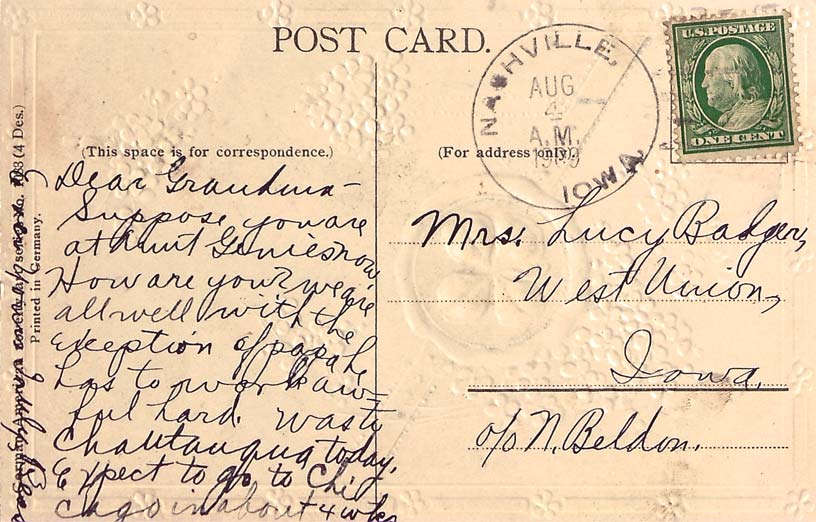 POST CARD.
U.S. POSTAGE
ONE CENT
NASHVILLE,
AUG
4
A.M.
1909
IOWA.
(This space is for correspondence.)
(For address only.)
Dear Grandma-
Suppose you are
at Aunt Genies now
How are you? we are
all well with the
exeption of papa he
has to work aw-
ful hard. was to
Chautauqua today.
Expect to go to Chi
cago in about 4 wks
Mrs. Lucy Badger,
West Union,
Iowa.
c/o N. Beldon.
Printed in Germany.
(4 Des.)